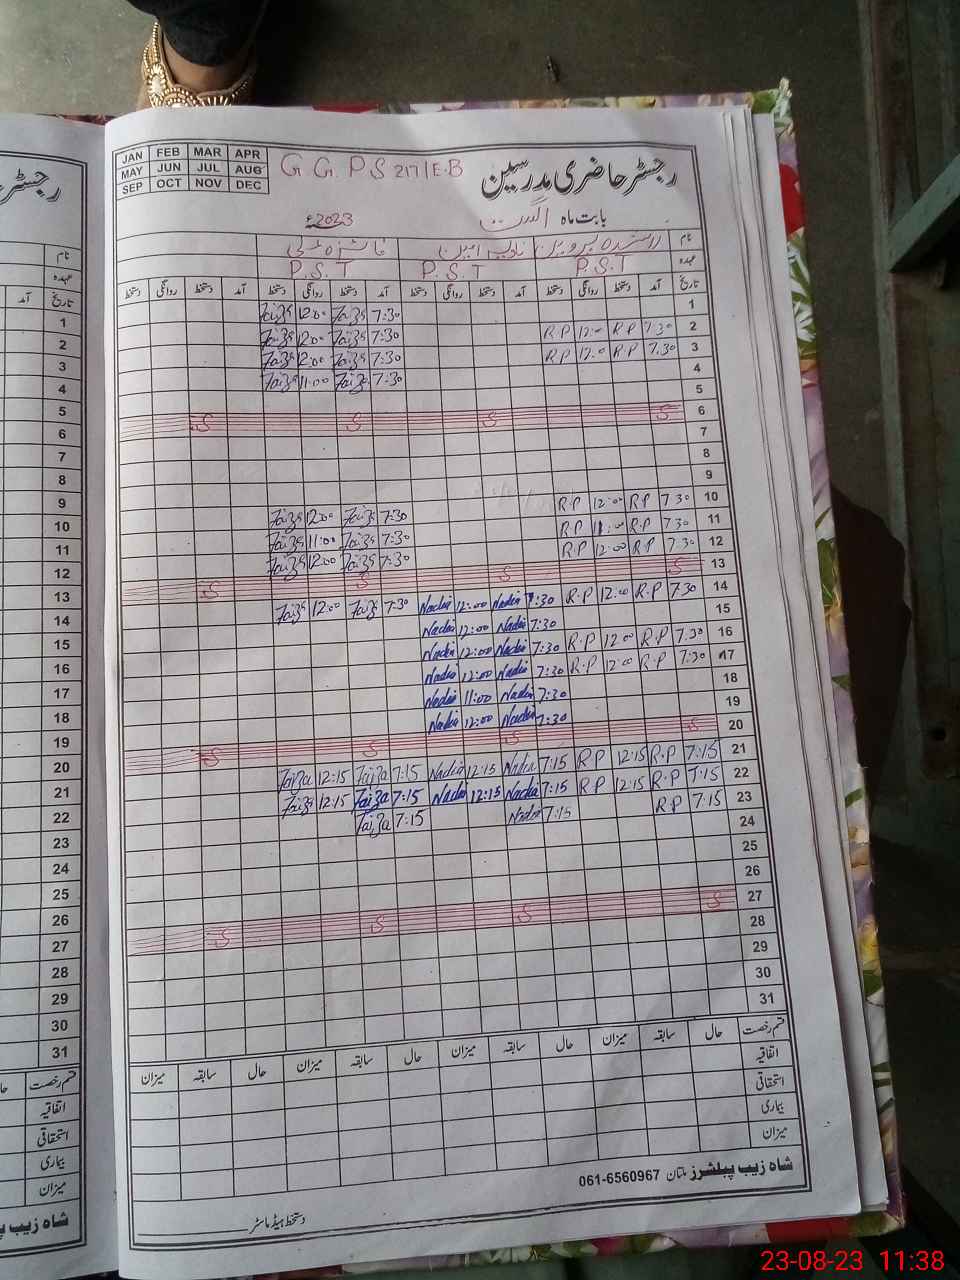 JAN FEB MAR APR
MAY JUN JUL AUG
SEP OCT NOV DEC
G.G.P.S 217/E.B
رجسٹر حاضری مدرسین
بابت ماہ اگست 2023ء
نام
عہدہ P.S.T P.S.T P.S.T
تاریخ آمد دستخط روانگی دستخط آمد دستخط روانگی دستخط آمد دستخط روانگی دستخط آمد دستخط روانگی دستخط
1 7:30 Faiza 12:00 Faiza
2 7:30 R.P 12:00 R.P 7:30 Faiza 12:00 Faiza
3 7:30 R.P 12:00 R.P 7:30 Faiza 12:00 Faiza
4 7:30 Faiza 11:00 Faiza
5
6 S S S S
7
8
9
10 7:30 R.P 12:00 R.P 7:30 Faiza 12:00 Faiza
11 7:30 R.P 11:00 R.P 7:30 Faiza 11:00 Faiza
12 7:30 R.P 12:00 R.P 7:30 Faiza 12:00 Faiza
13 S S S S
14 7:30 R.P 12:00 R.P 7:30 Nadia 12:00 Nadia 7:30 Faiza 12:00 Faiza
15 7:30 Nadia 12:00 Nadia
16 7:30 R.P 12:00 R.P 7:30 Nadia 12:00 Nadia
17 7:30 R.P 12:00 R.P 7:30 Nadia 12:00 Nadia
18 7:30 Nadia 11:00 Nadia
19 7:30 Nadia 12:00 Nadia
20 S S S S
21 7:15 R.P 12:15 R.P 7:15 Nadia 12:15 Nadia 7:15 Faiza 12:15 Faiza
22 7:15 R.P 12:15 R.P 7:15 Nadia 12:15 Nadia 7:15 Faiza 12:15 Faiza
23 7:15 R.P 7:15 Nadia 7:15 Faiza
24
25
26
27 S S S S
28
29
30
31
قسم رخصت حال سابقہ میزان حال سابقہ میزان حال سابقہ میزان حال سابقہ میزان
اتفاقیہ
استحقاقی
بیماری
میزان
شاہ زیب پبلشرز ملتان 061-6560967
دستخط ہیڈ ماسٹر
نام
عہدہ
تاریخ آمد
1
2
3
4
5
6
7
8
9
10
11
12
13
14
15
16
17
18
19
20
21
22
23
24
25
26
27
28
29
30
31
قسم رخصت
اتفاقیہ
استحقاقی
بیماری
میزان
شاہ زیب
23-08-23 11:38